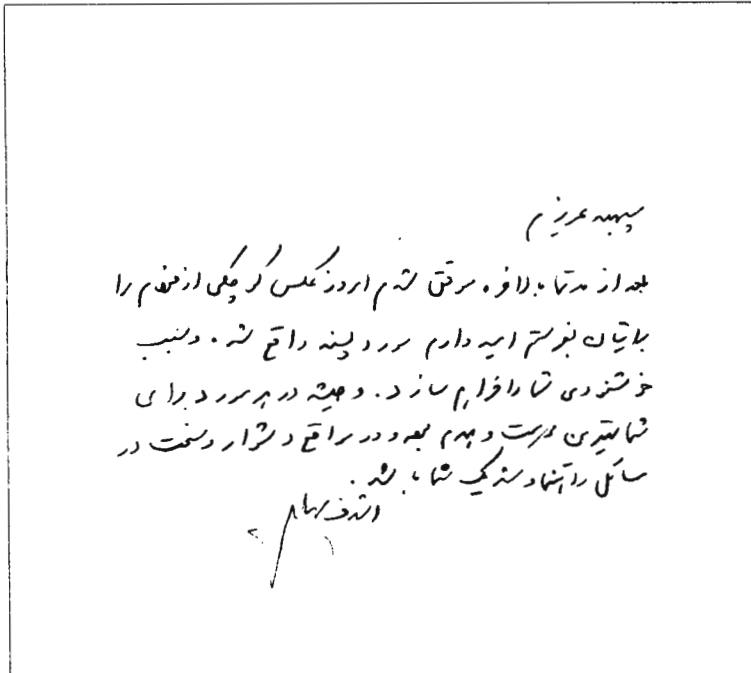 عزیزم
بعد از مدتها بالاخره موفق شدم امروز عکس کوچکی از خودم را
برایتان بفرستم امیدوارم مورد پسند واقع شد. و سبب
خوشنودی شما را فراهم سازد. و همیشه در هر مورد برای
شما بهترین دوست و همدم بوده و در مواقع دشوار و سخت در
مسائل راهنما و شریک شما باشد.
اشرف